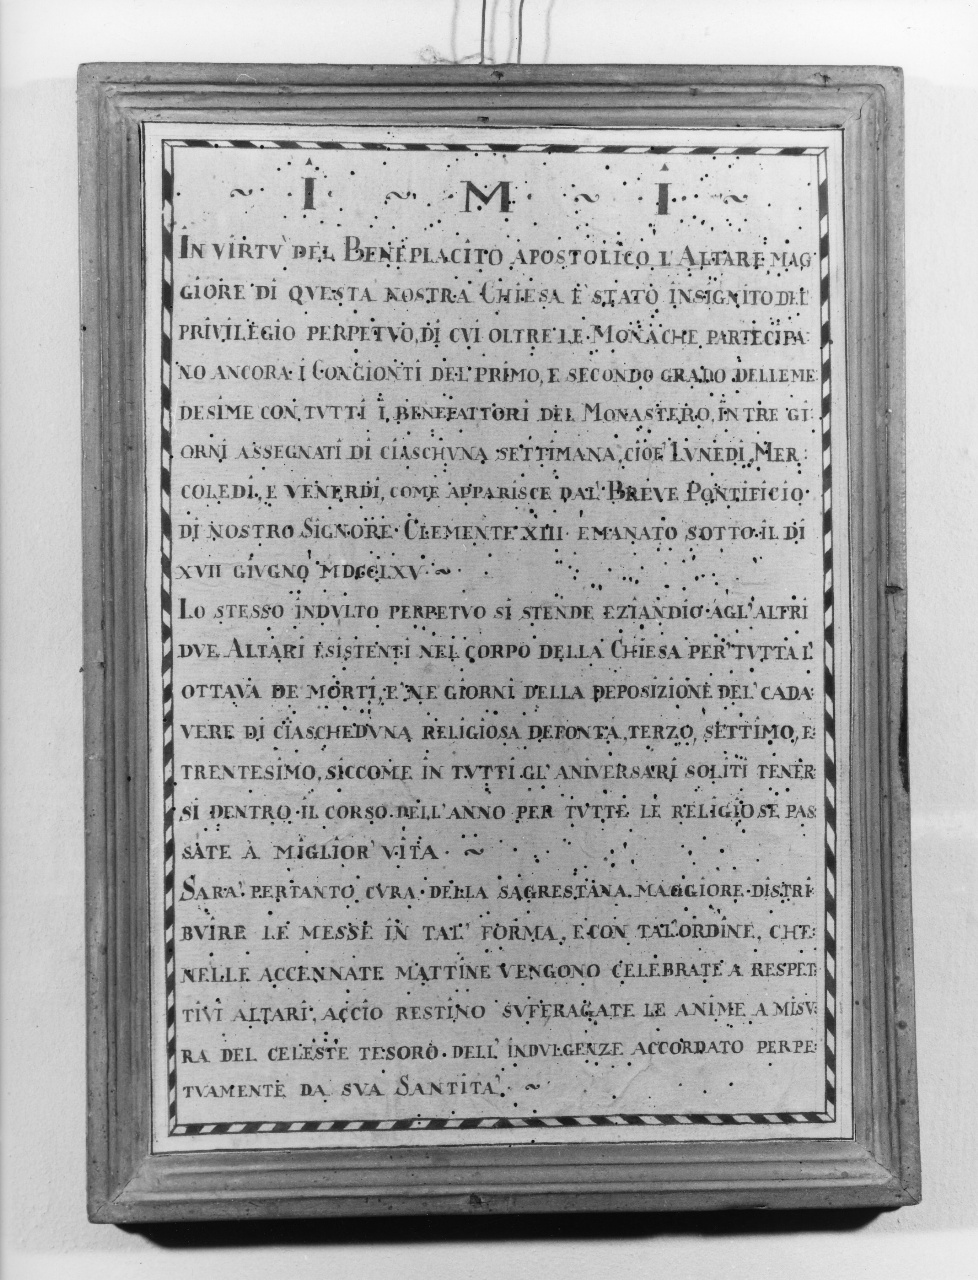 I M I
IN VIRTV' DEL BENEPLACITO APOSTOLICO L'ALTARE MAG
GIORE DI QVESTA NOSTRA CHIESA E' STATO INSIGNITO DEL
PRIVILEGIO PERPETVO, DI CVI OLTRE LE MONACHE PARTECIPA:
NO ANCORA I CONGIONTI DEL PRIMO, E SECONDO GRADO DELLE ME
DESIME CON TVTTI I BENEFATTORI DEL MONASTERO, IN TRE GI:
ORNI ASSEGNATI DI CIASCHVNA SETTIMANA, CIOE' LVNEDI, MER:
COLEDI, E VENERDI, COME APPARISCE DAL' BREVE PONTIFICIO
DI NOSTRO SIGNORE CLEMENTE XIII EMANATO SOTTO IL DI
XVII GIVGNO MDCCLXV ~
LO STESSO INDVLTO PERPETVO SI STENDE EZIANDIO AGL'ALTRI
DVE ALTARI ESISTENTI NEL CORPO DELLA CHIESA PER TVTTA L'
OTTAVA DE MORTI, E NE GIORNI DELLA DEPOSIZIONE DEL' CADA:
VERE DI CIASCHEDVNA RELIGIOSA DEFONTA, TERZO, SETTIMO, E
TRENTESIMO, SICCOME IN TVTTI GL'ANIVERSARI SOLITI TENER
SI DENTRO IL CORSO DELL'ANNO PER TVTTE LE RELIGIOSE PAS
SATE À MIGLIOR VITA ~
SARA' PERTANTO CVRA DELLA SAGRESTANA MAGGIORE DISTRI
BVIRE LE MESSE IN TAL' FORMA, E CON TAL'ORDINE, CHE:
NELLE ACCENNATE MATTINE VENGONO CELEBRATE A RESPET:
TIVI ALTARI, ACCIO RESTINO SVFFRAGATE LE ANIME A MISV:
RA DEL CELESTE TESORO DELL' INDVLGENZE ACCORDATO PERPE:
TVAMENTE DA SVA SANTITA'. ~